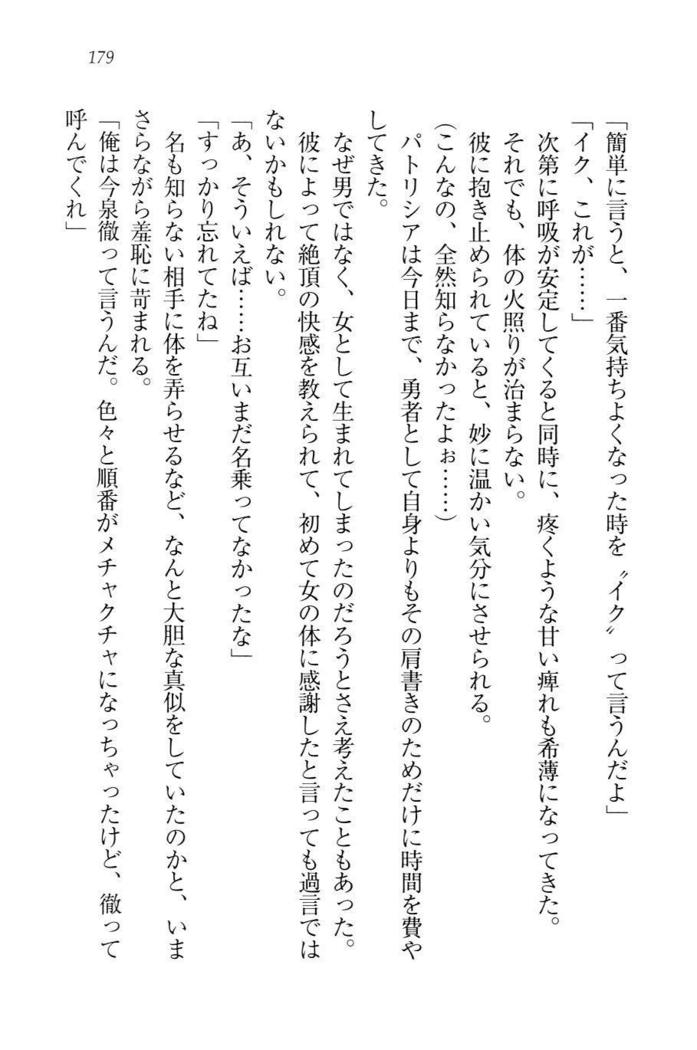 179
「簡単に言うと、一番気持ちよくなった時を〝イク〟って言うんだよ」
「イク、これが……」
次第に呼吸が安定してくると同時に、疼くような甘い痺れも希薄になってきた。
それでも、体の火照りが治まらない。
彼に抱き止められていると、妙に温かい気分にさせられる。
(こんなの、全然知らなかったよぉ……)
パトリシアは今日まで、勇者として自身よりもその肩書きのためだけに時間を費や
してきた。
なぜ男ではなく、女として生まれてしまったのだろうとさえ考えたこともあった。
彼によって絶頂の快感を教えられて、初めて女の体に感謝したと言っても過言では
ないかもしれない。
「あ、そういえば……お互いまだ名乗ってなかったな」
「すっかり忘れてたね」
名も知らない相手に体を弄らせるなど、なんと大胆な真似をしていたのかと、いま
さらながら羞恥に苛まれる。
「俺は今泉徹って言うんだ。色々と順番がメチャクチャになっちゃったけど、徹って
呼んでくれ」